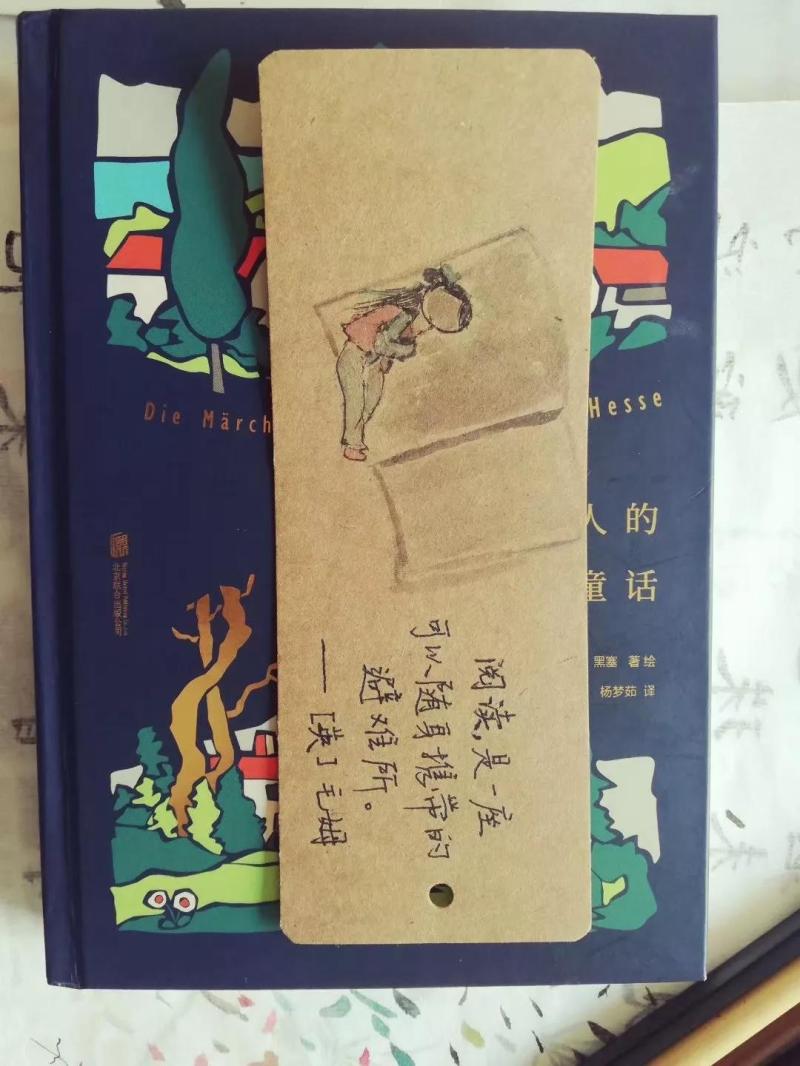 Die Märch
Hesse
人的
童话
黑塞 著绘
杨梦茹 译
北京联合出版公司
阅读,是一座
可以随身携带的
避难所。
——[英]毛姆